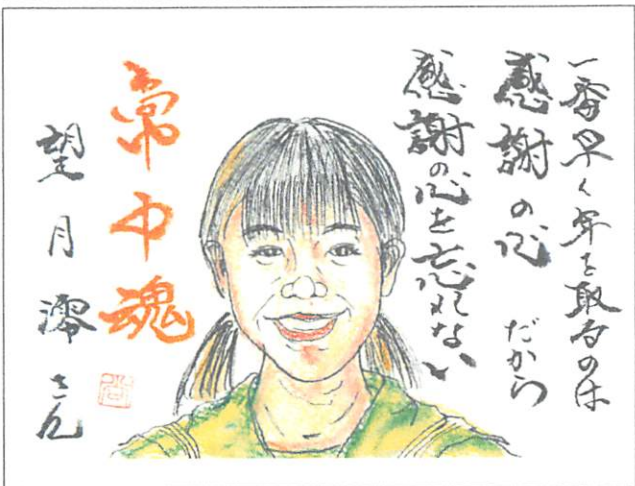 一番早く年を取るのは
感謝の心 だから
感謝の心を忘れない
常中魂
望月澪さん